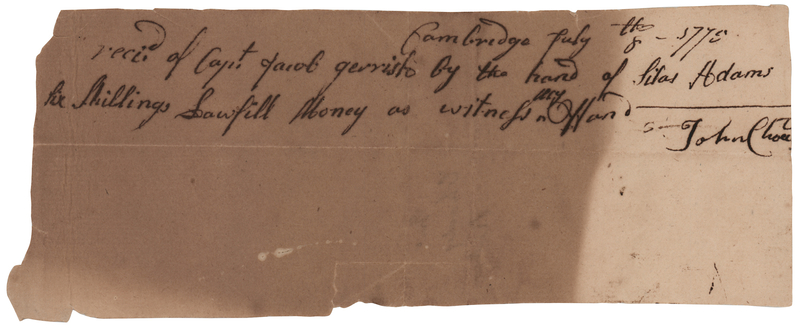 Cambridge July th 8 - 1775
recid of Capt Jacob gerrish by the hand of Silas Adams
six Shillings Lawfill Money as witness my Hand
John